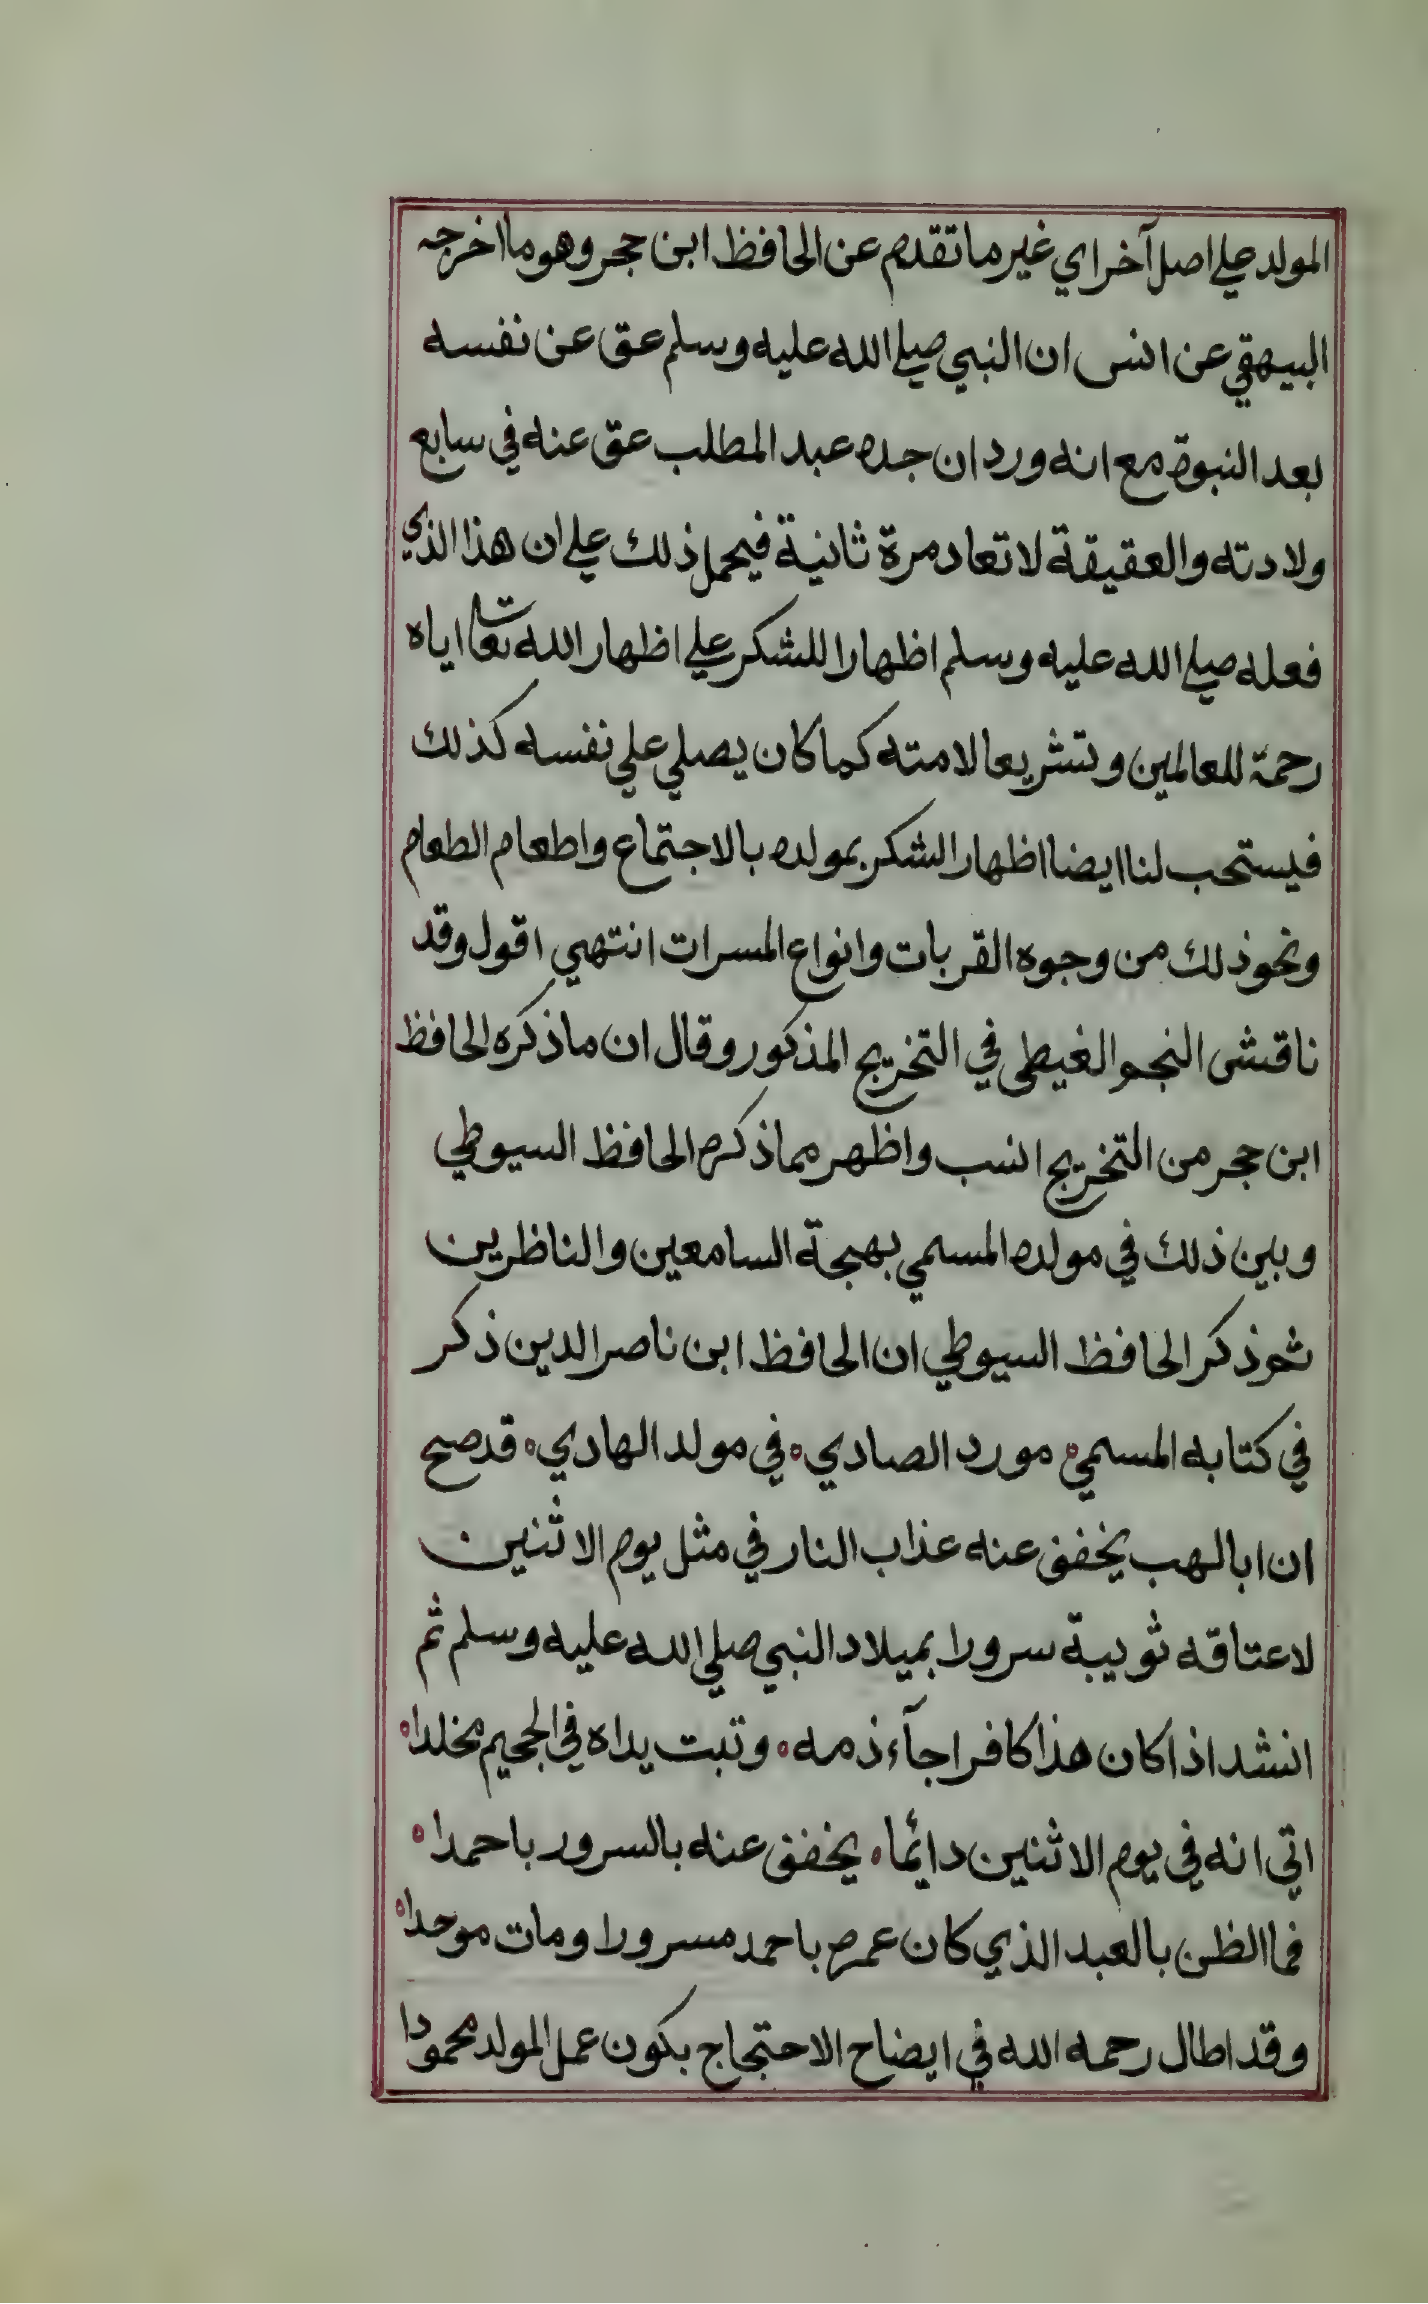 المولد علي اصل آخر اي غير ما تقدم عن الحافظ ابن حجر وهو ما اخرجه
البيهقي عن انس ان النبي صلي الله عليه وسلم عق عن نفسه
بعد النبوة مع انه ورد ان جده عبد المطلب عق عنه في سابع
ولادته والعقيقة لا تعاد مرة ثانية فيحمل ذلك علي ان هذا الذي
فعله صلي الله عليه وسلم اظهارا للشكر علي اظهار الله تعالي اياه
رحمة للعالمين وتشريعا لامته كما كان يصلي علي نفسه كذلك
فيستحب لنا ايضا اظهار الشكر بمولده بالاجتماع واطعام الطعام
ونحو ذلك من وجوه القربات وانواع المسرات انتهي اقول وقد
ناقش النجم الغيطي في التخريج المذكور وقال ان ما ذكره الحافظ
ابن حجر من التخريج انسب واظهر مما ذكره الحافظ السيوطي
وبين ذلك في مولده المسمي بهجة السامعين والناظرين
ثم ذكر الحافظ السيوطي ان الحافظ ابن ناصر الدين ذكر
في كتابه المسمي ه مورد الصادي ه في مولد الهادي ه قد صح
ان ابا لهب يخفف عنه عذاب النار في مثل يوم الاثنين
لاعتاقه ثويبة سرورا بميلاد النبي صلي الله عليه وسلم ثم
انشد اذا كان هذا كافرا جآء ذمه ه وتبت يداه في الجحيم مخلدا ه
اتي انه في يوم الاثنين دائما ه يخفف عنه بالسرور باحمدا ه
فما الظن بالعبد الذي كان عمره باحمد مسرورا ومات موحدا ه
وقد اطال رحمه الله في ايضاح الاحتجاج بكون عمل المولد محمودا